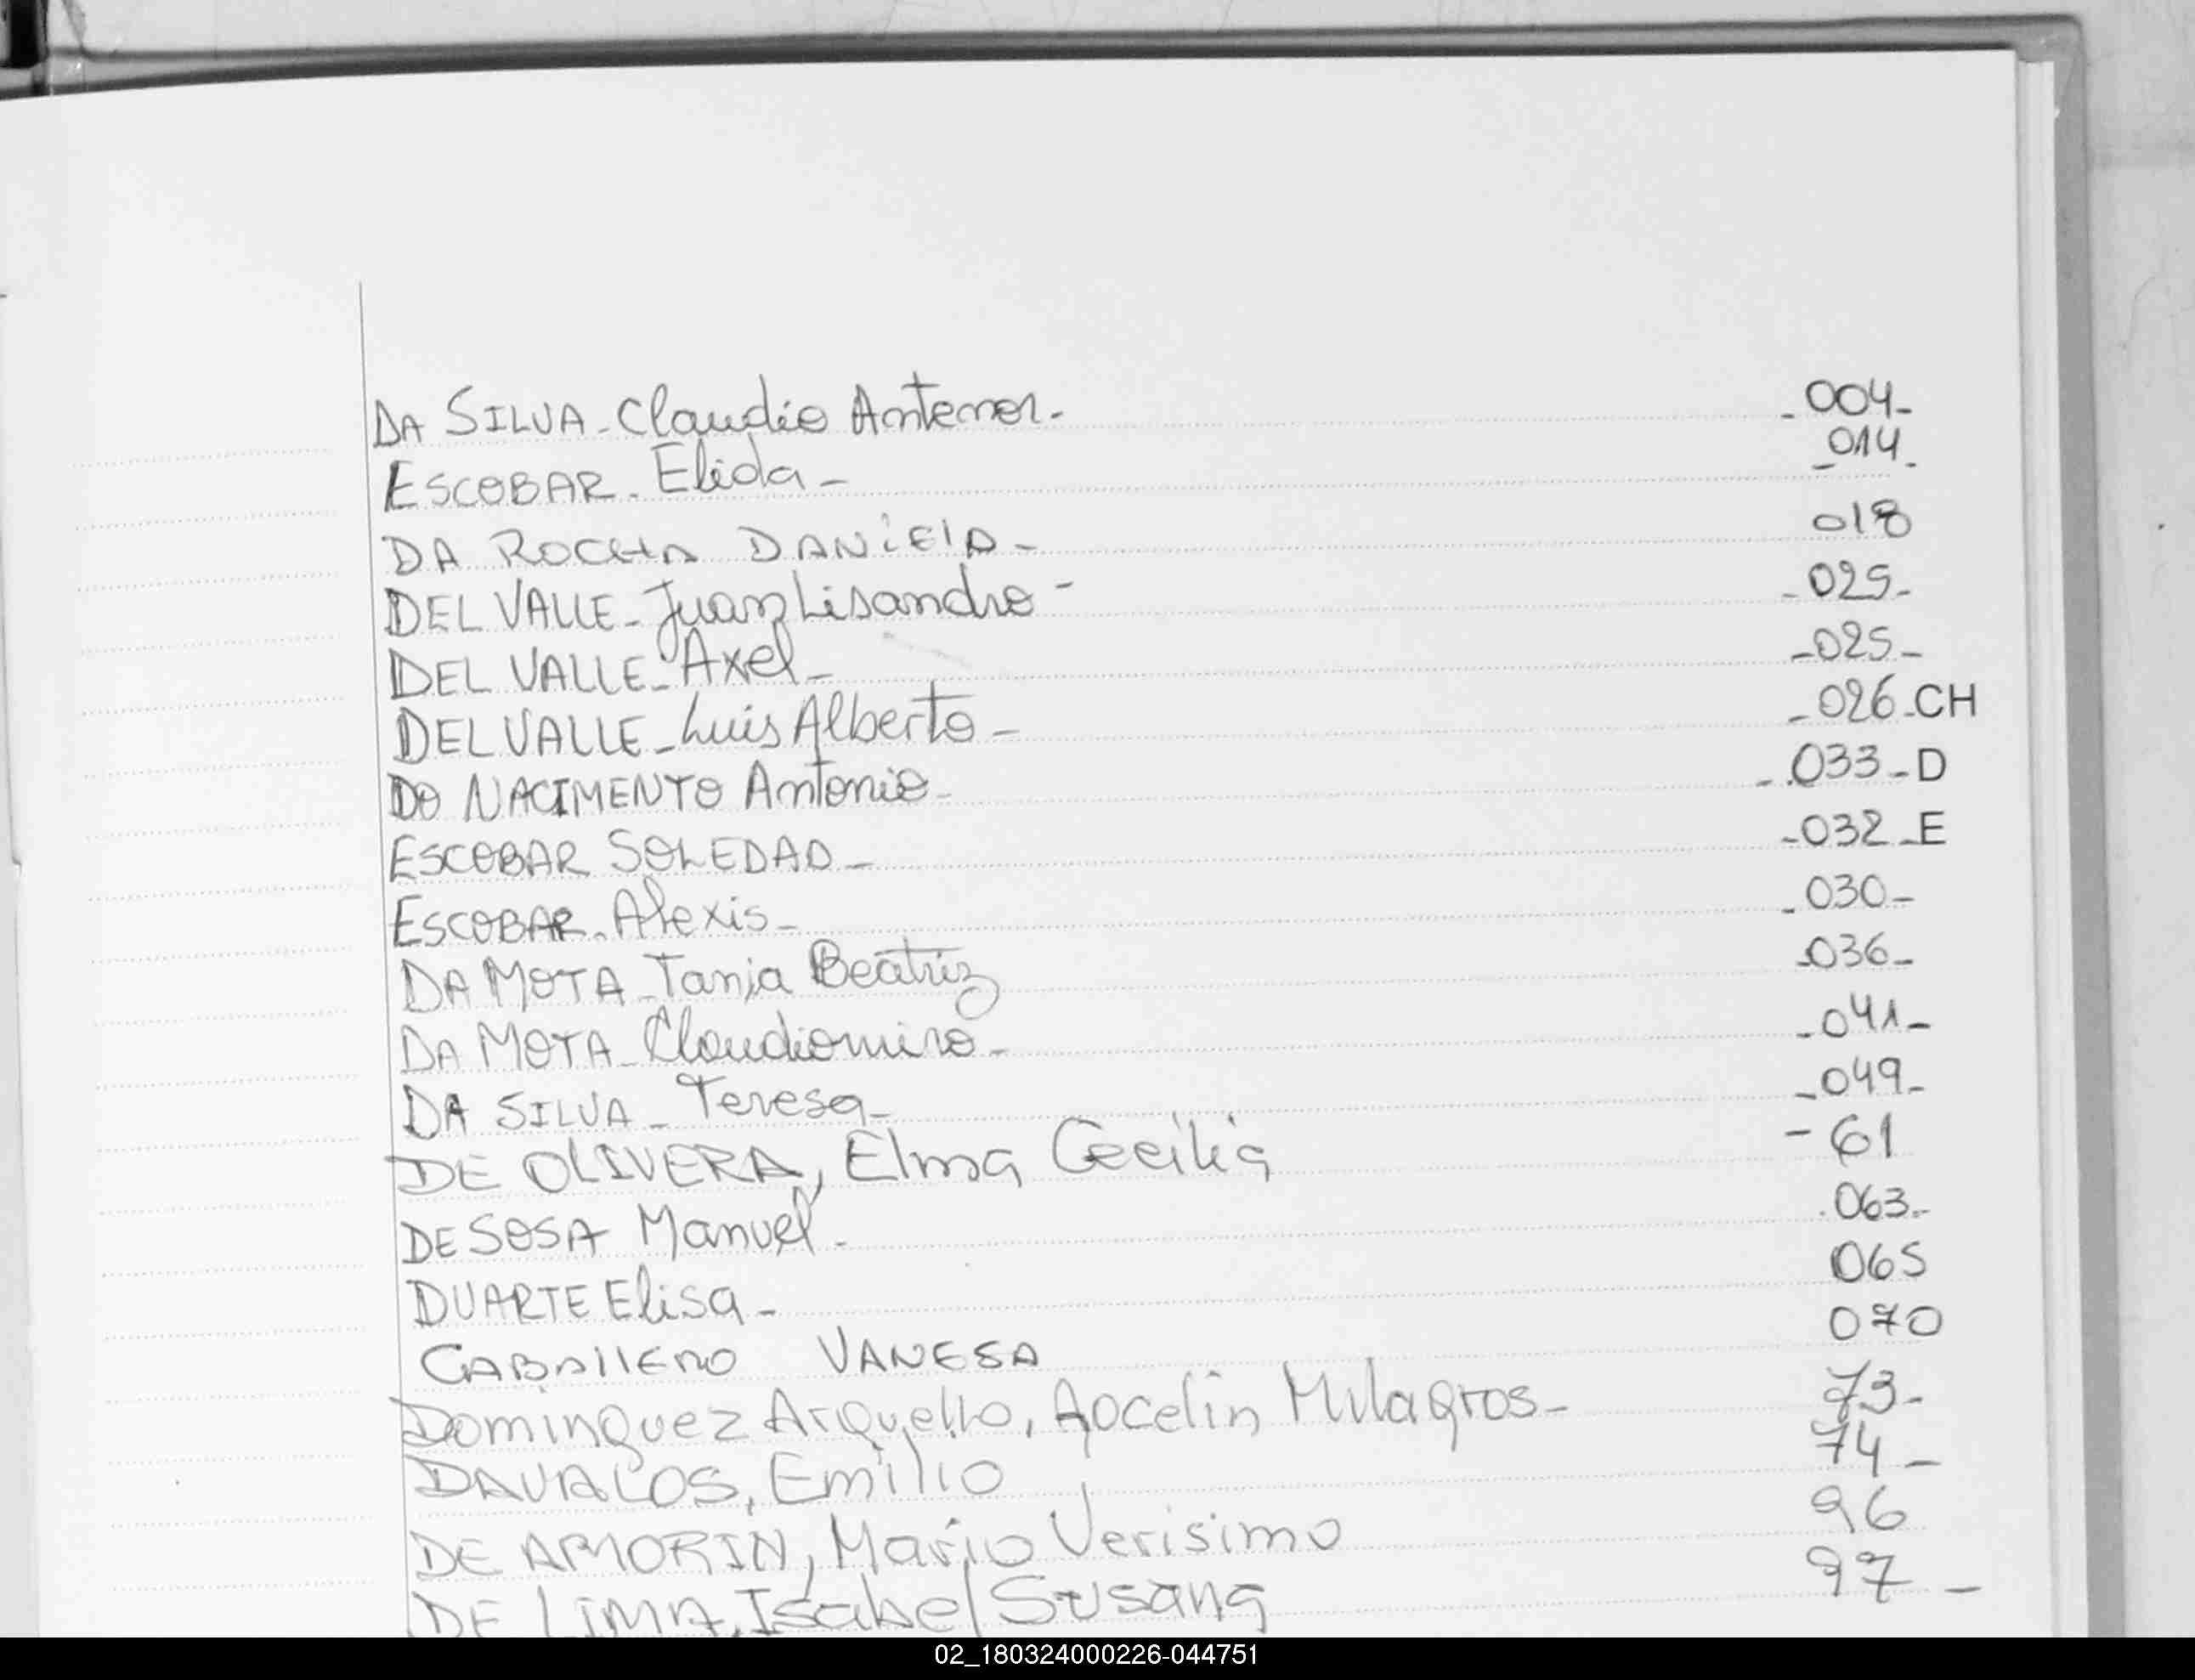 DA SILVA - Claudio Antenor - - 004 -
ESCOBAR - Elida - - 014 -
DA ROCHA DANiElA - 018
DEL VALLE - Juan Lisandro - - 025 -
DEL VALLE - Axel - - 025 -
DEL VALLE - Luis Alberto - - 026 - CH
DO NACIMENTO Antonio - - 033 - D
ESCOBAR SOLEDAD - - 032 - E
ESCOBAR - Alexis - - 030 -
DA MOTA - Tania Beatriz - 036 -
DA MOTA - Claudiomiro - - 041 -
DA SILVA - Teresa - - 049 -
DE OLIVERA, Elma Cecilia - 61
DE SOSA Manuel - - 063 -
DUARTE Elisa - 065
CABAllERO VANESA 070
Dominguez Arguello, Jocelin Milagros - 73 -
DAVALOS, Emilio 74 -
DE AMORIN, Mario Verisimo 96
DE LIMA, Isabel Susana 97 -
02_180324000226-044751